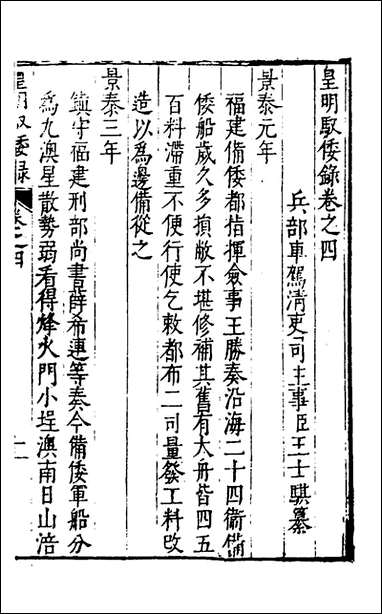 皇明馭倭錄卷之四
兵部車駕清吏司主事臣王士騏纂
景泰元年
福建備倭都指揮僉事王勝奏沿海二十四衞備
倭船歲久多損敝不堪修補其舊有大舟皆四五
百料滯重不便行使乞敕都布二司量發工料改
造以爲邊備從之
景泰三年
鎮守福建刑部尚書薛希璉等奏今備倭軍船分
爲九澳星散勢弱看得烽火門小埕澳南日山浯
皇明馭倭錄
卷之四
一